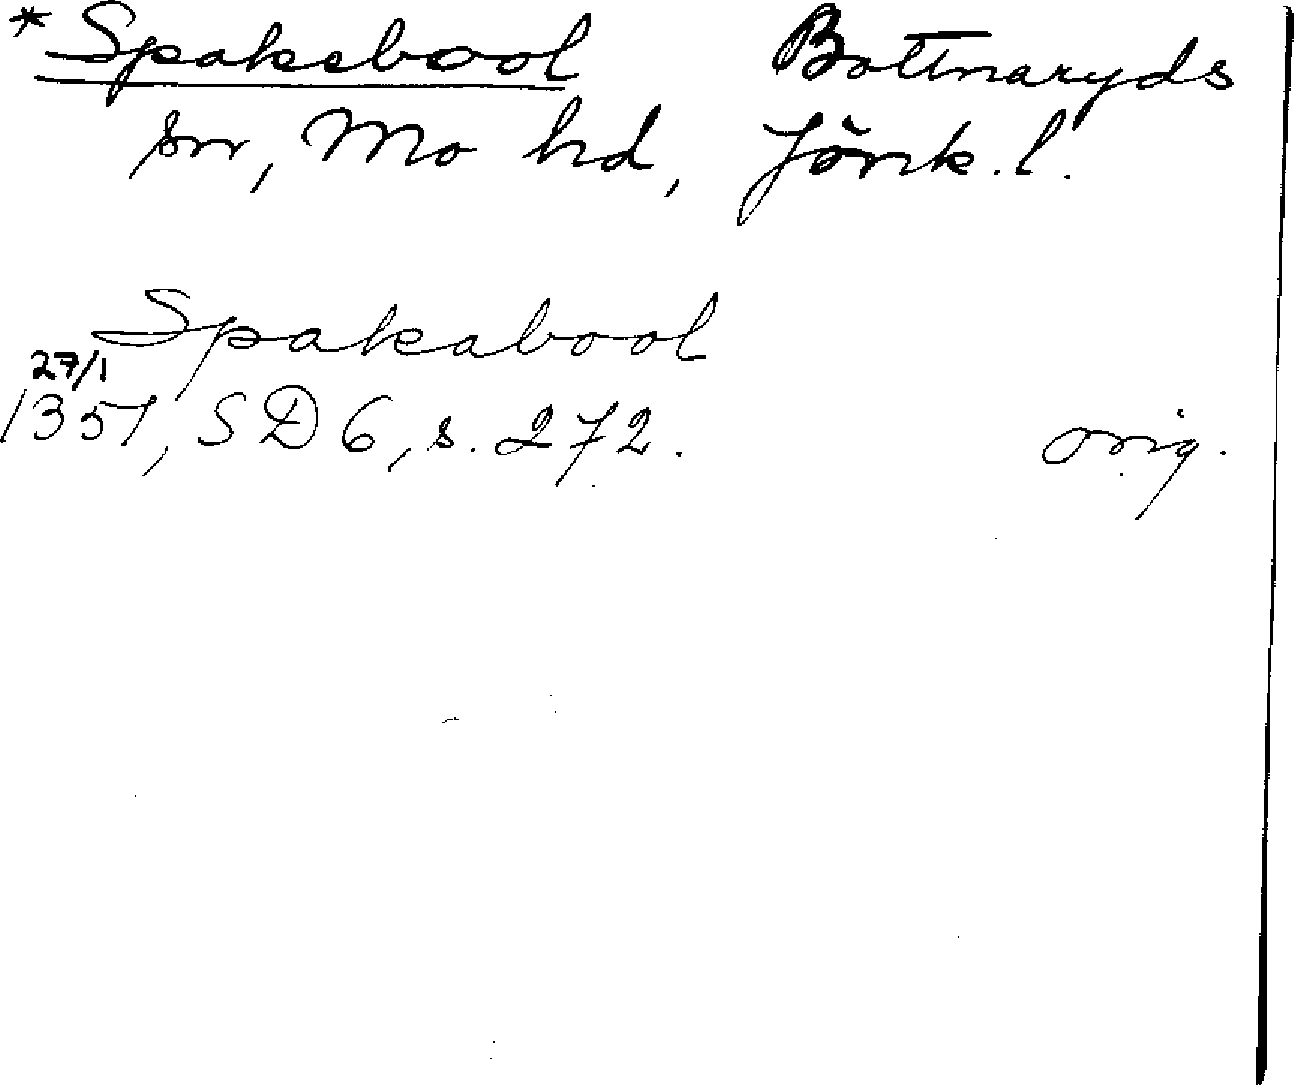 *Spakebool Bottnaryds
sn, Mo hd, Jönk. l.
Spakabool
27/1
1351, SD 6, s. 272. orig.